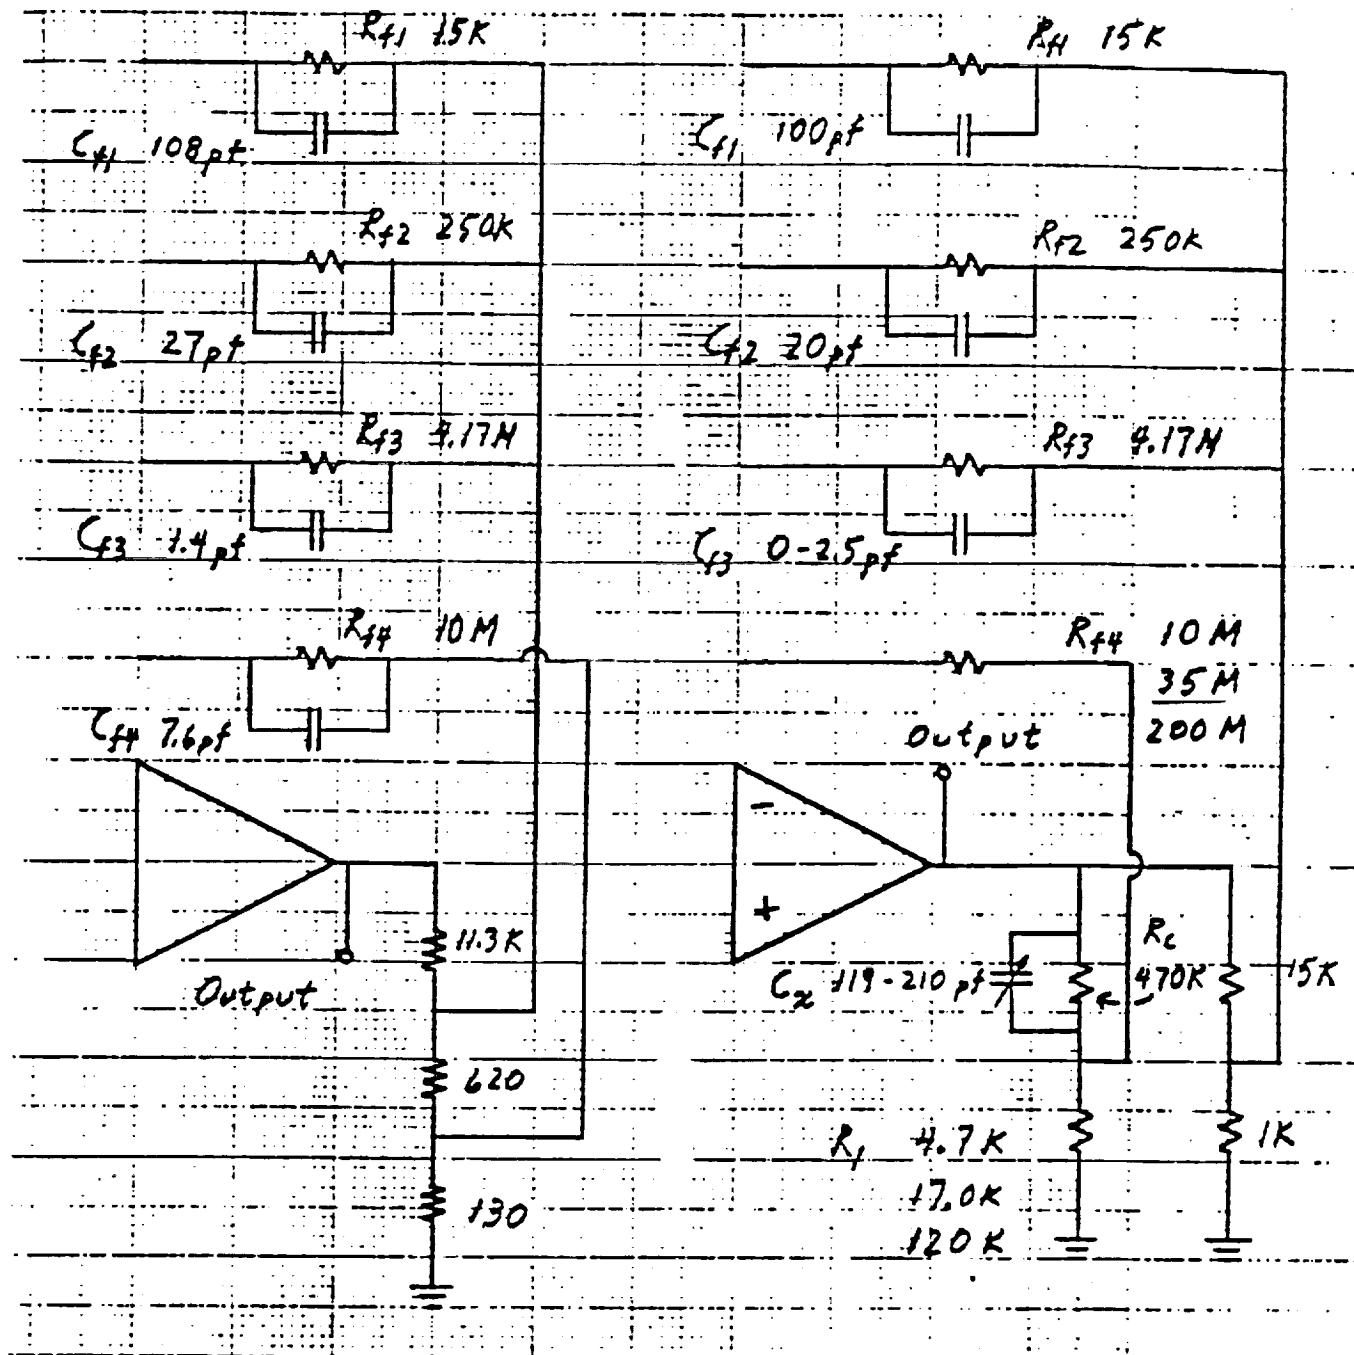 Rf1 15K
Cf1 108pf
Rf2 250K
Cf2 27pf
Rf3 4.17M
Cf3 1.4pf
Rf4 10M
Cf4 7.6pf
Output
11.3K
620
130
Rf1 15K
Cf1 100pf
Rf2 250K
Cf2 20pf
Rf3 4.17M
Cf3 0-2.5pf
Rf4 10M
35M
200M
Output
-
+
Cx 119-210 pf
Rc
470K
15K
R1 4.7K
17.0K
120K
1K